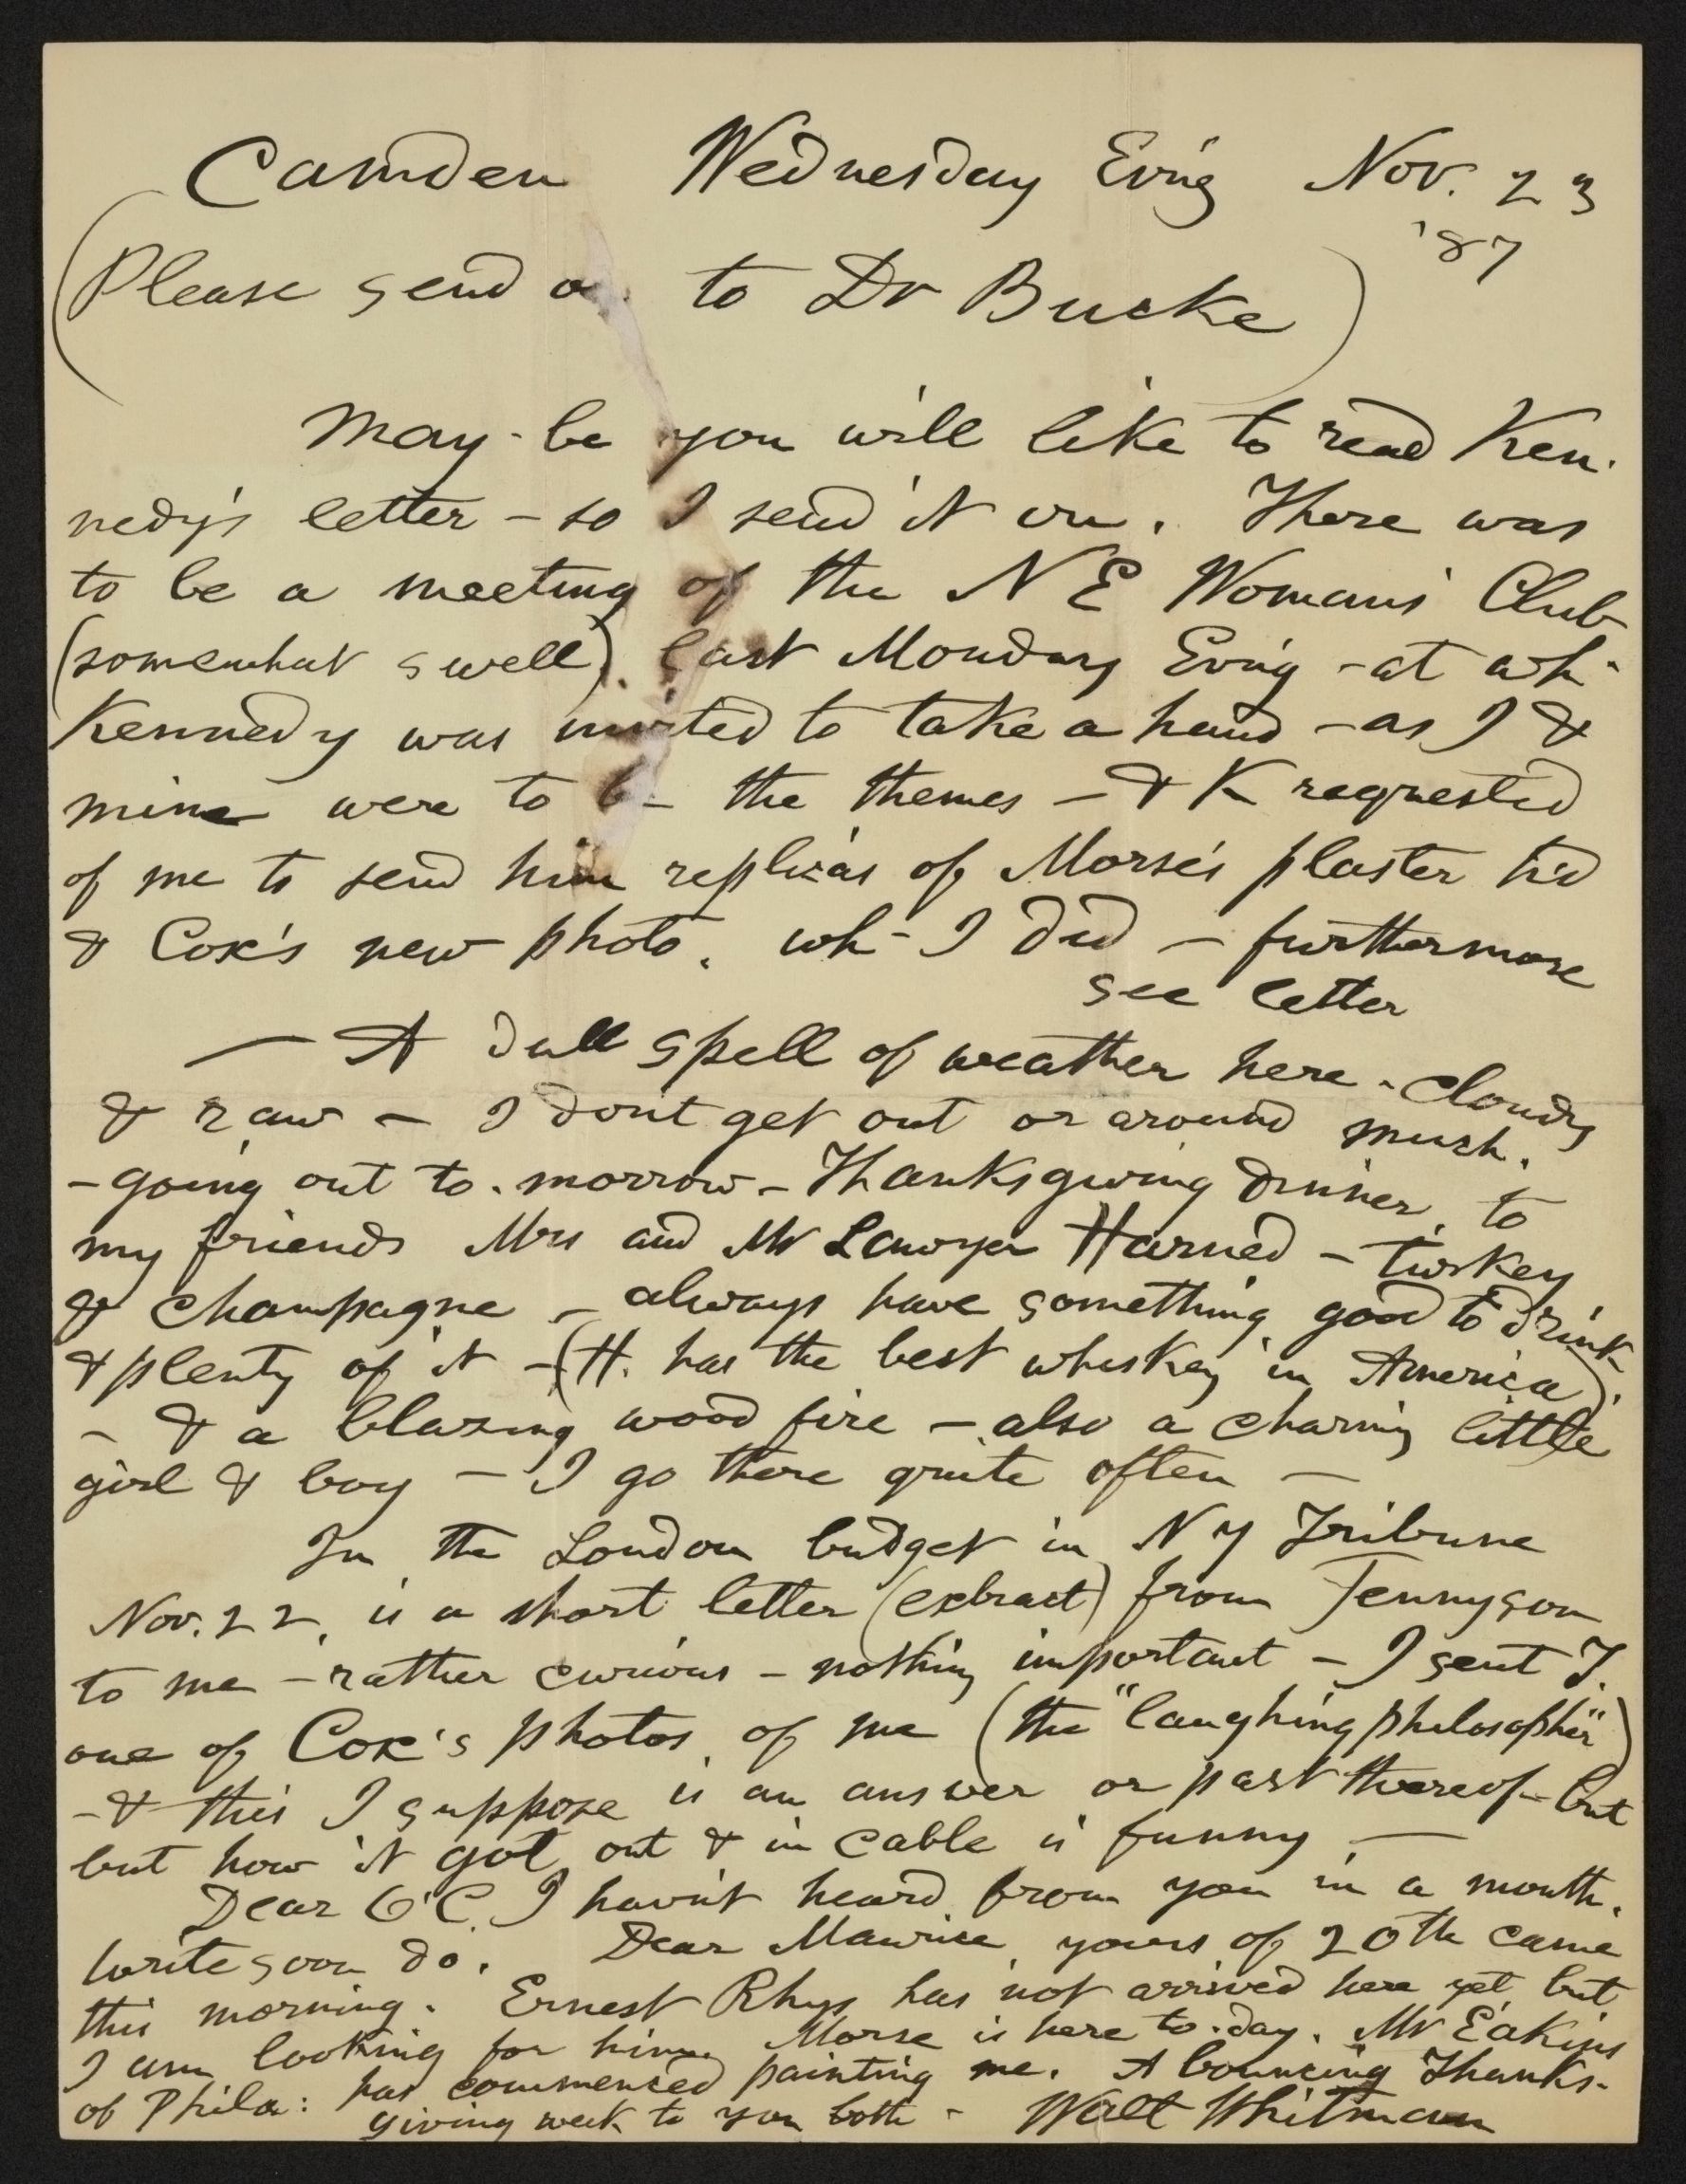 Camden Wednesday Ev'ng Nov. 23
'87
(Please send on to Dr Bucke)
May-be you will like to read Ken-
nedy's letter – so I send it on. There was
to be a meeting of the N E Woman's Club
(somewhat swell), last Monday Ev'ng – at wh-
Kennedy was invited to take a hand – as I &
mine were to be the themes – & K requested
of me to send him replicas of Morse's plaster h'd
& Cox's new photo, wh- I did – furthermore
see letter
– A dull spell of weather here – cloudy
& raw – I dont get out or around much.
– going out to-morrow – Thanksgiving dinner, to
my friends Mrs and Mr Lawyer Harned – turkey
& champagne – always have something good to drink
& plenty of it – (H. has the best whiskey in America).
– & a blazing wood fire – also a charm'g little
girl & boy – I go there quite often –
In the London budget in N Y Tribune
Nov. 22, is a short letter (extract) from Tennyson
to me – rather curious – nothing important – I sent T.
one of Cox's photos, of me (the "laughing philosopher")
– & this I suppose is an answer or part thereof – but
but how it got out & in cable is funny –
Dear O'C, I hav'nt heard from you in a month.
write soon do. Dear Maurice, yours of 20th came
this morning. Ernest Rhys has not arrived here yet but
I am looking for him. Morse is here to-day. Mr Eakins
of Phila: has commenced painting me. A bouncing Thanks-
giving week to you both – Walt Whitman